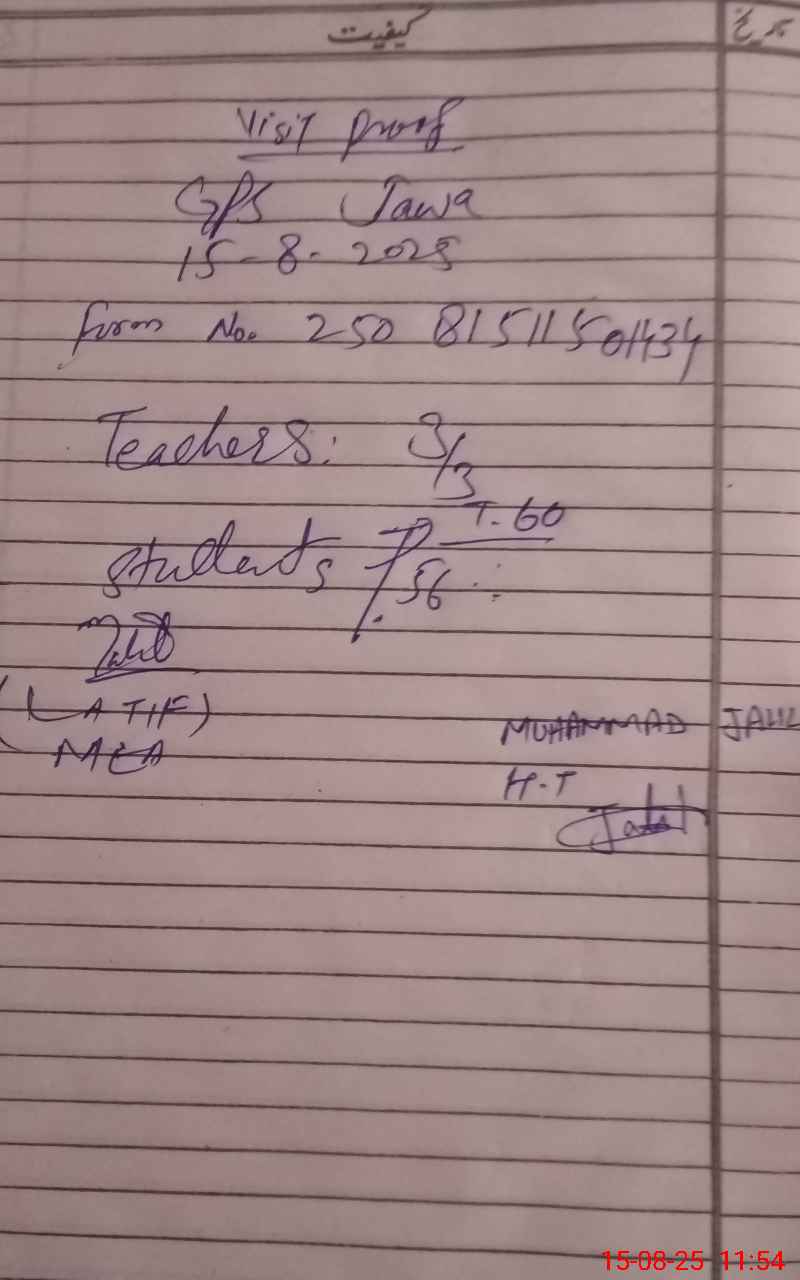 کیفیت تاریخ
Visit Proof
GPS Jawa
15-8-2025
Form No. 250 81511501434
Teachers: 3/3
Students T-60
P. 56
(LATIF)
MEA
MUHAMMAD JALIL
H-T
Jalil
15-08-25 11:54